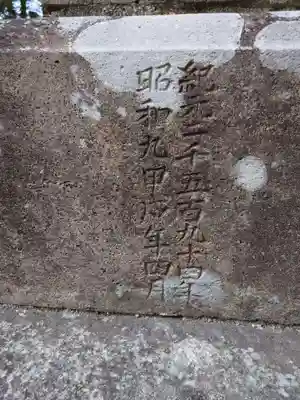 紀元二千五百九十四年
昭和九甲戌年四月